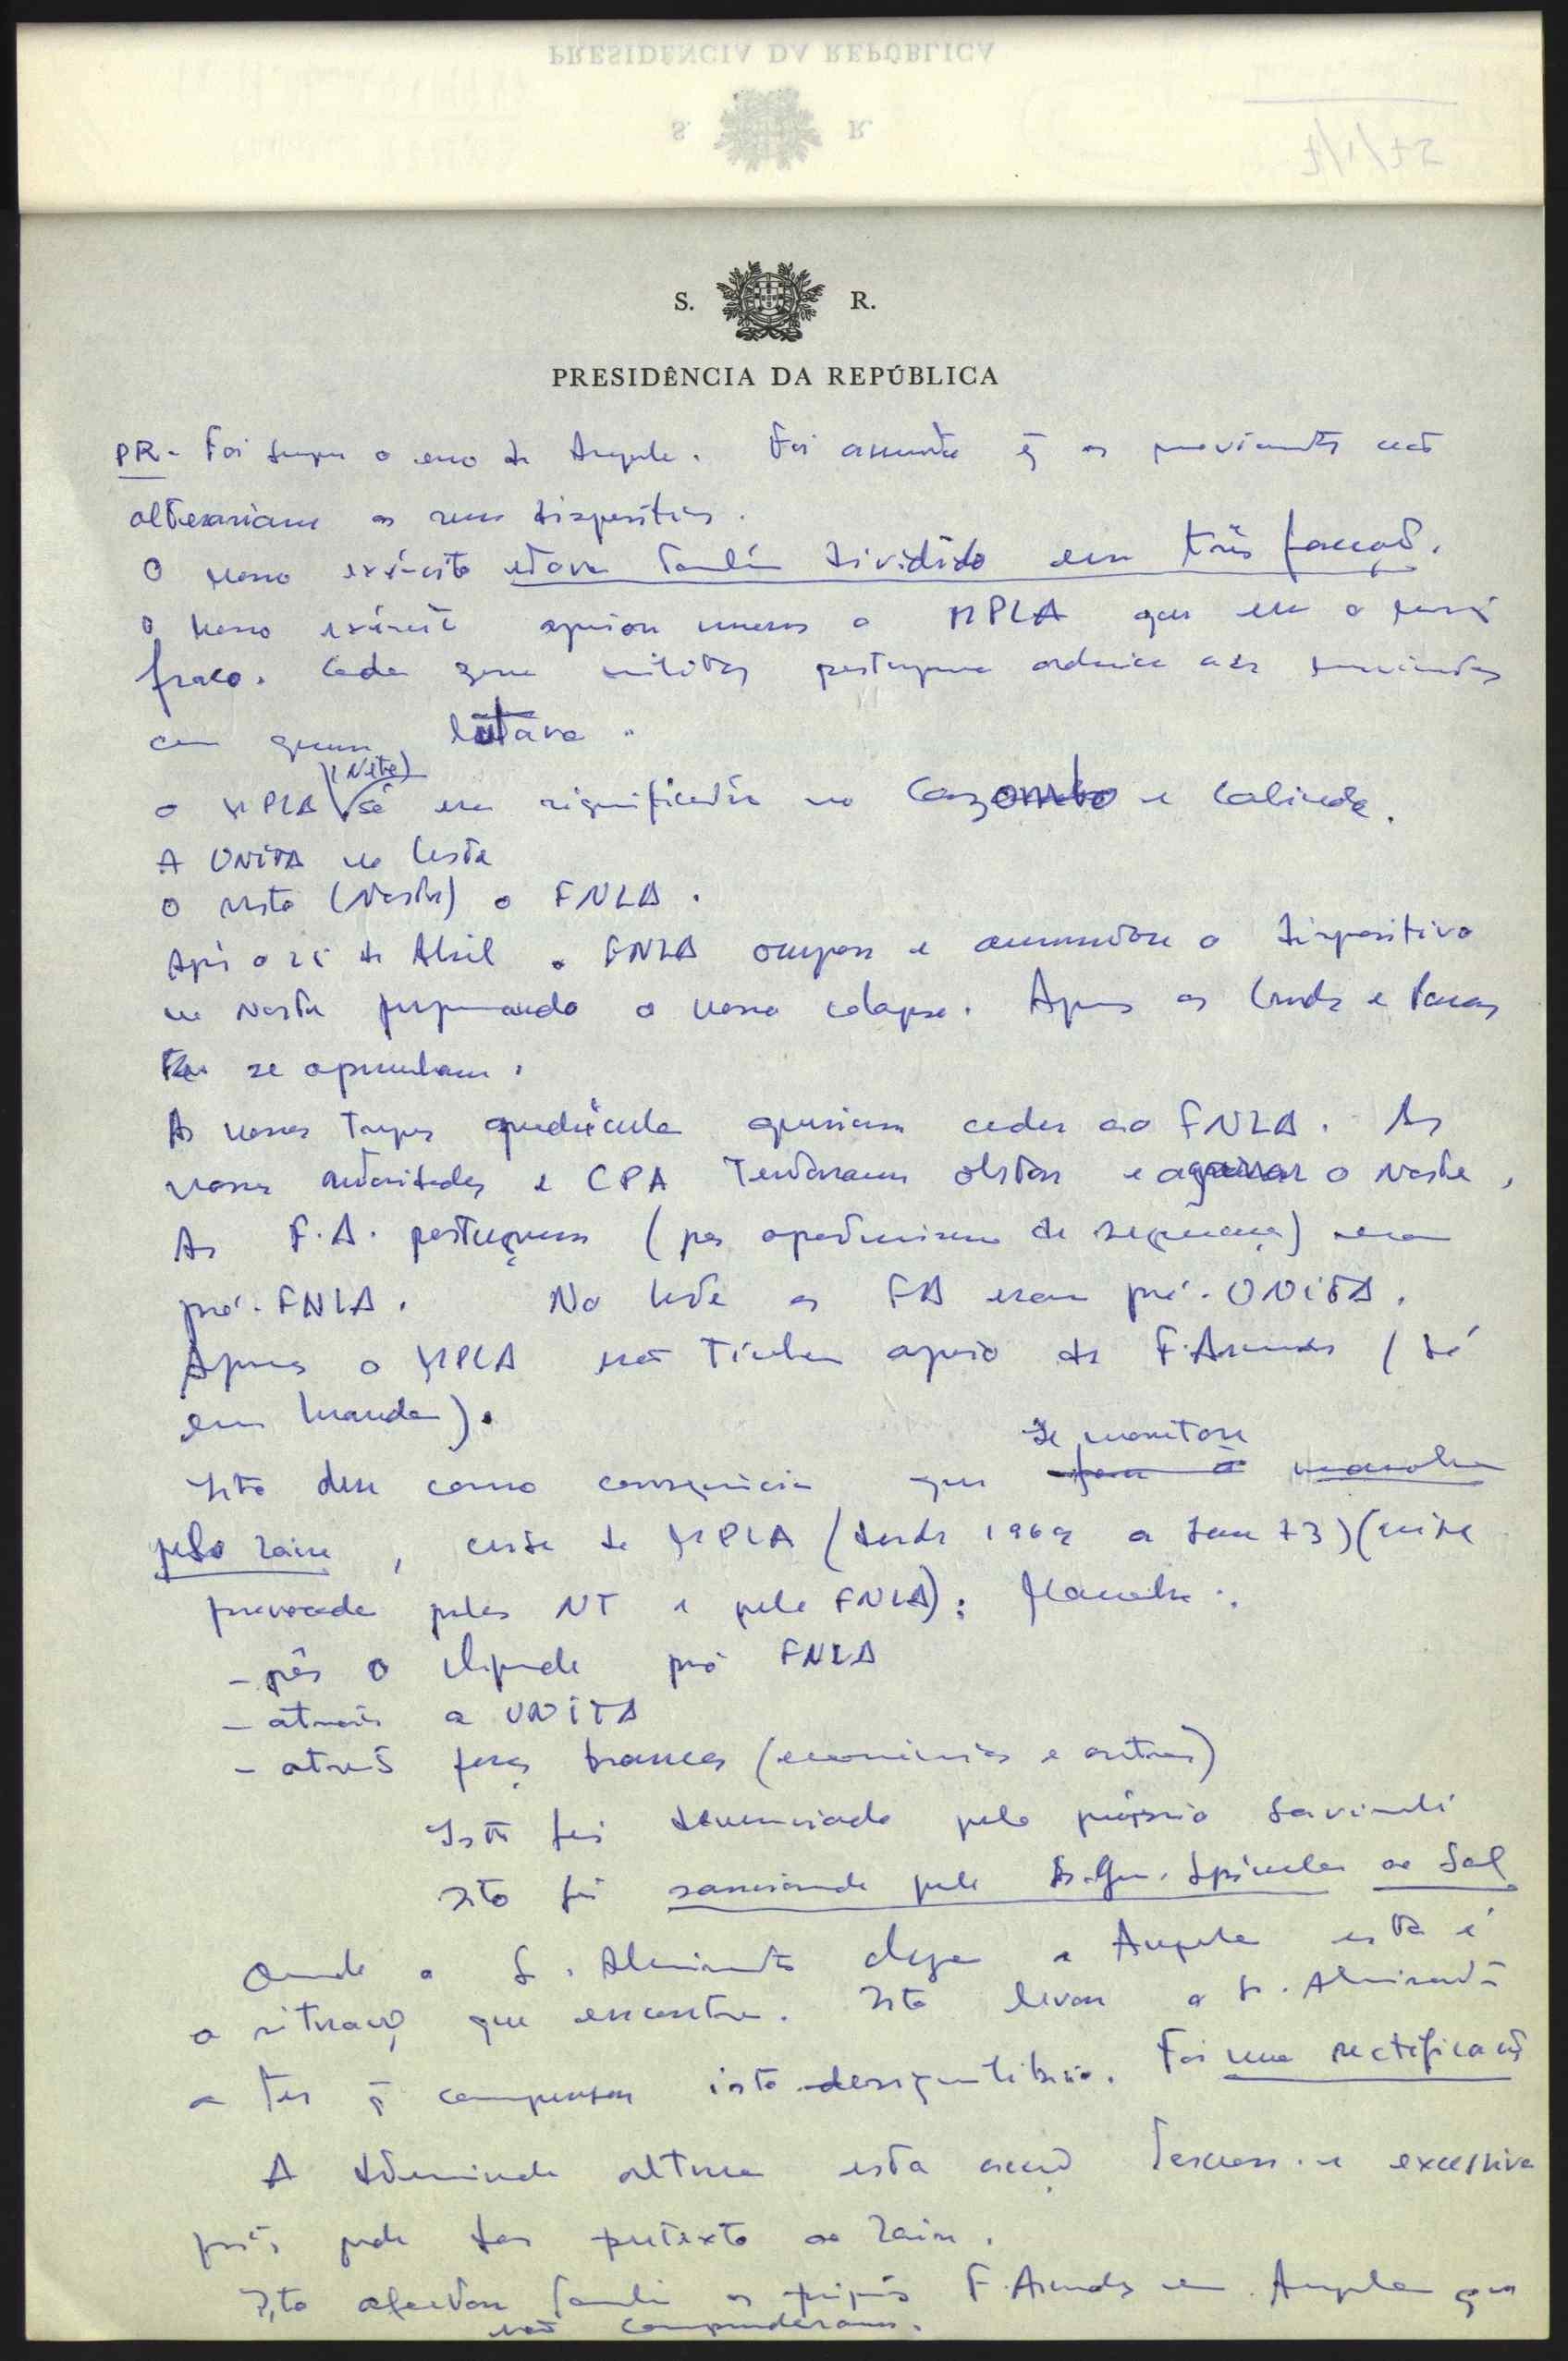 S. R.
PRESIDÊNCIA DA REPÚBLICA
PR - Foi sempre o erro de Angola. Foi assente q̃ os movimentos não
alterariam os seus dispositivos.
O nosso exército estava também dividido em três facções.
O nosso exército apoiou menos o MPLA que era o mais
fraco. Cada zona militar portuguesa aos movimentos
com quem lutava.
O MPLA (Neto) só era significativo no Cazombo e Cabinda.
A UNITA no Leste
O resto (Norte) o FNLA.
Após o 25 de Abril o FNLA ocupou e aumentou o dispositivo
no Norte o nosso colapso. Apenas os e
se opunham.
As nossas tropas quadrícula queriam ceder ao FNLA. As
nossas autoridades e CPA tentaram obstar e o Norte,
As F.A. portuguesas (por oportunismo de segurança) eram
pró-FNLA. No Leste as FA eram pró-UNITA.
Apenas o MPLA não tinha apoio das F. Armadas (só
em Luanda).
Isto deu como consequência que se montou manobra
pelo Zaire, crise do MPLA (desde 1969 a 73) (crise
provocada pelas NT e pela FNLA); Manobra:
- pôs o Chipenda pró FNLA
- atraiu a UNITA
- atraiu forças brancas (económicas e outras)
Isto foi denunciado pelo próprio Savimbi
Isto foi sancionado pelo Sr. Gen. Spínola no Sal
Quando o S. Almirante chega a Angola esta é
a situação que encontra. Isto levou o Sr. Almirante
a ter q̃ compensar isto desiquilíbrio. Foi uma rectificação
A determinada altura esta acção excessiva
pois pode dar pretexto ao Zaire.
Isto afectou também as próprias F. Armadas em Angola que
não compreenderam.